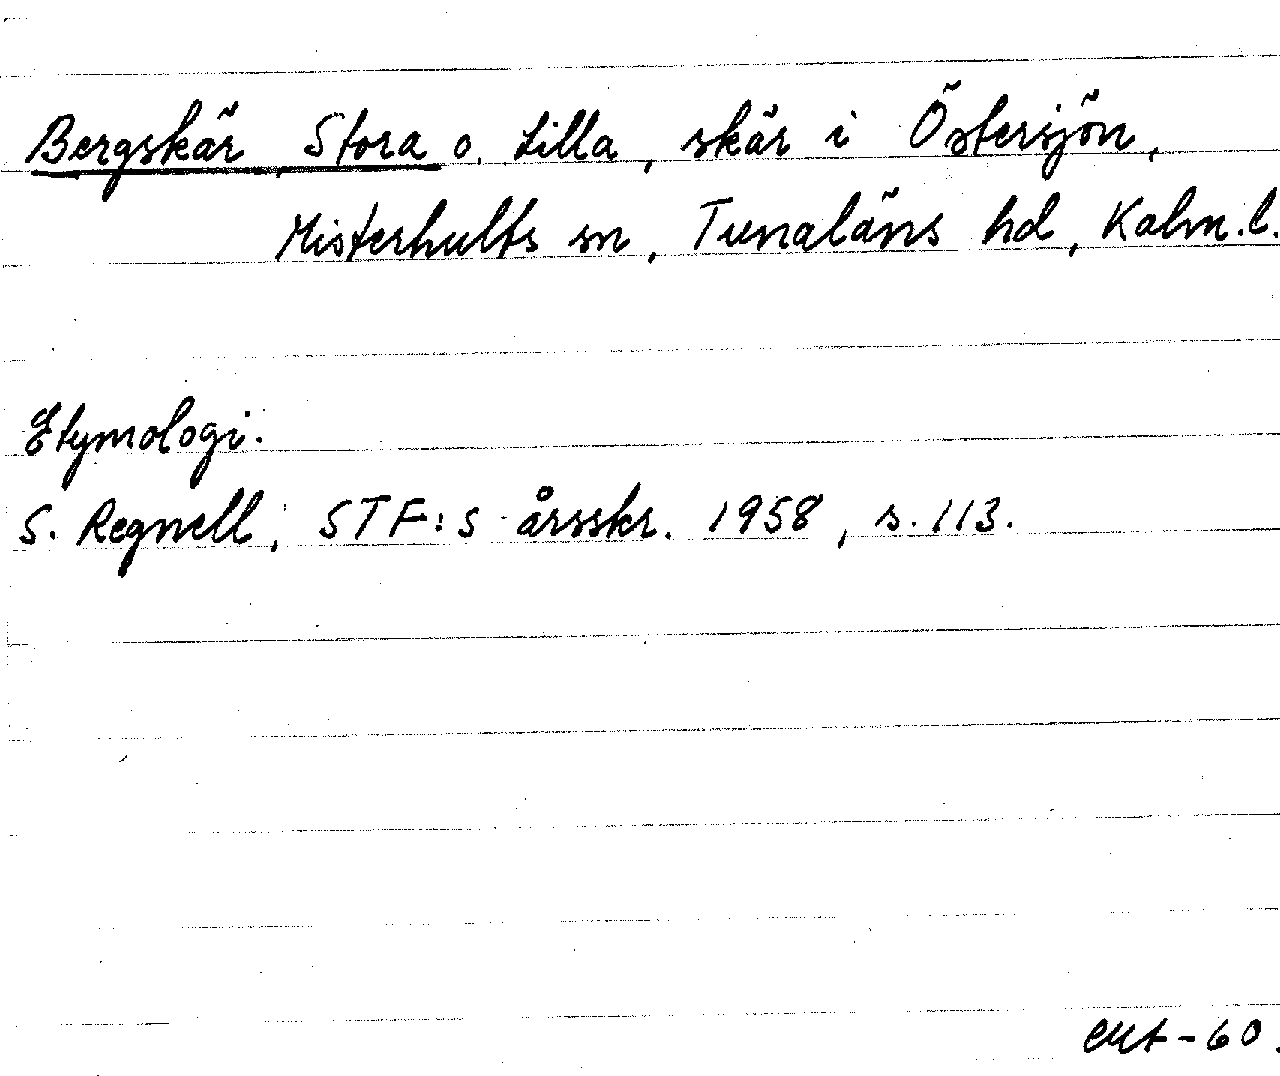 Bergskär, Stora o. Lilla, skär i Östersjön,
Misterhults sn, Tunaläns hd, Kalm.l.
Etymologi.
S. Regnell, STF:s årsskr. 1958, s. 113.
-60.